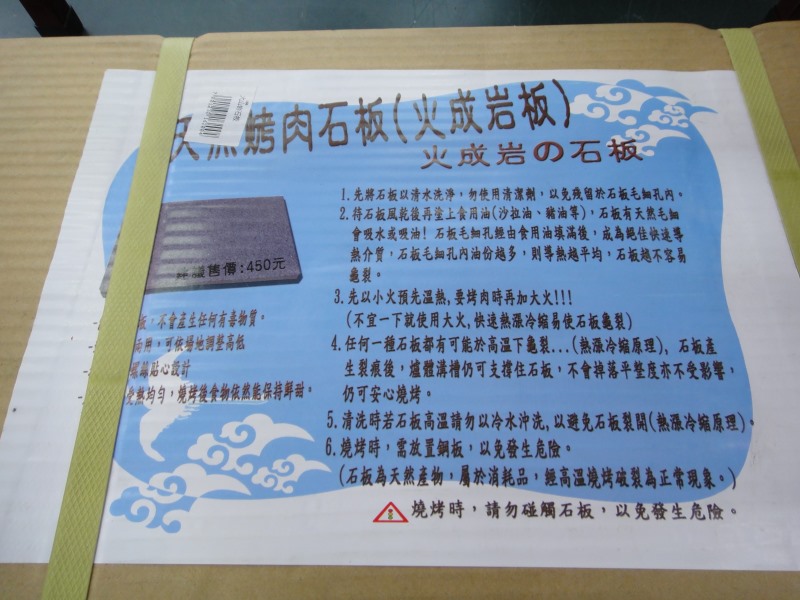 天然烤肉石板(火成岩板)
火成岩の石板
1.先將石板以清水洗淨，勿使用清潔劑，以免殘留於石板毛細孔內。
2.待石板風乾後再塗上食用油(沙拉油、豬油等)，石板有天然毛細
會吸水或吸油！石板毛細孔經由食用油填滿後，成為絕佳快速導
熱介質，石板毛細孔內油份越多，則導熱越平均，石板越不容易
龜裂。
3.先以小火預先溫熱，要烤肉時再加大火!!!
(不宜一下就使用大火,快速熱漲冷縮易使石板龜裂)
4.任何一種石板都有可能於高溫下龜裂...(熱漲冷縮原理)，石板產
生裂痕後，爐體溝槽仍可支撐住石板，不會掉落平整度亦不受影響，
仍可安心燒烤。
5.清洗時若石板高溫請勿以冷水沖洗,以避免石板裂開(熱漲冷縮原理)。
6.燒烤時，需放置鋼板，以免發生危險。
(石板為天然產物，屬於消耗品，經高溫燒烤破裂為正常現象。)
燒烤時，請勿碰觸石板，以免發生危險。
建議售價:450元
板，不會產生任何有毒物質。
兩用，可依場地調整高低
螺絲貼心設計
受熱均勻，燒烤後食物依然能保持鮮甜。